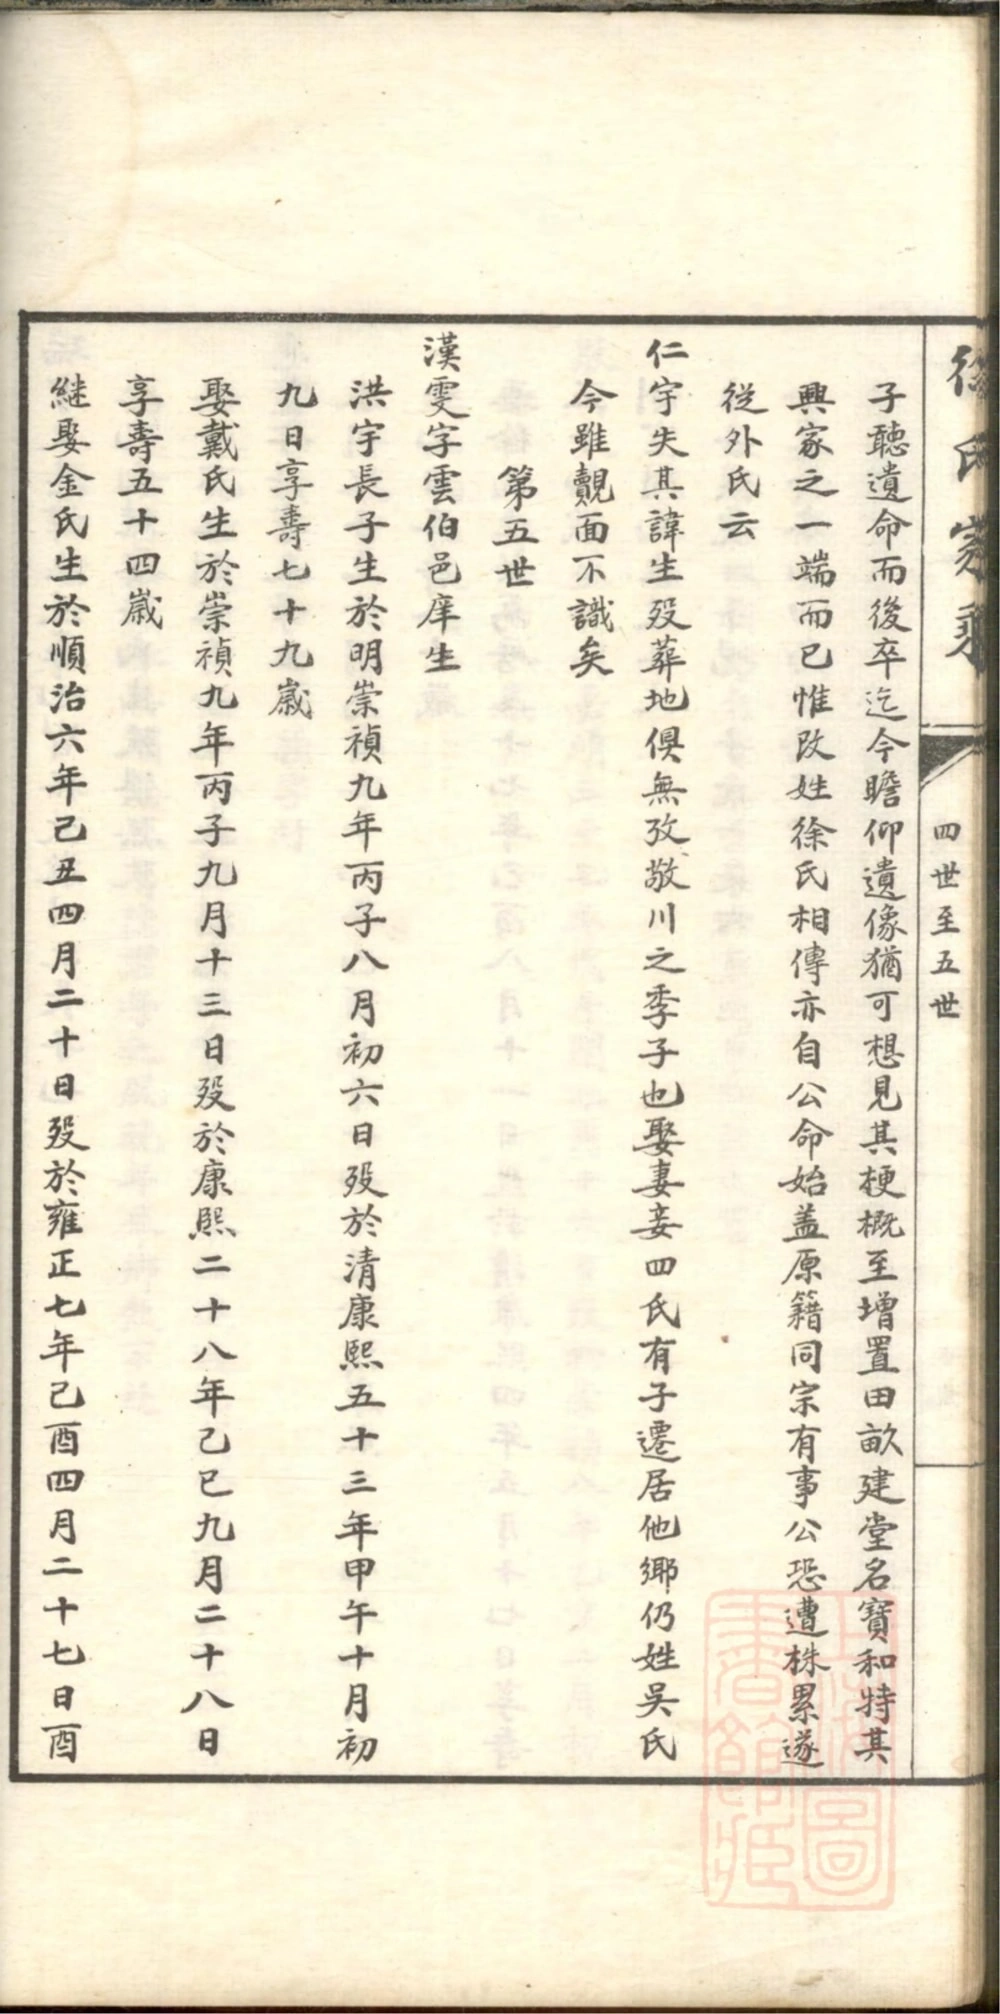 徐氏家乘
四世至五世
子聽遺命而後卒迄今瞻仰遺像猶可想見其梗概至增置田畝建堂名寶和特其
興家之一端而已惟改姓徐氏相傳亦自公命始盖原籍同宗有事公恐遭株累遂
從外氏云
仁宇失其諱生歿葬地俱無攷敬川之季子也娶妻妾四氏有子遷居他鄉仍姓吳氏
今雖覿面不識矣
第五世
漢雯字雲伯邑庠生
洪宇長子生於明崇禎九年丙子八月初六日歿於清康熙五十三年甲午十月初
九日享壽七十九歲
娶戴氏生於崇禎九年丙子九月十三日歿於康熙二十八年己巳九月二十八日
享壽五十四歲
継娶金氏生於順治六年己丑四月二十日歿於雍正七年己酉四月二十七日酉
上海圖
書館藏